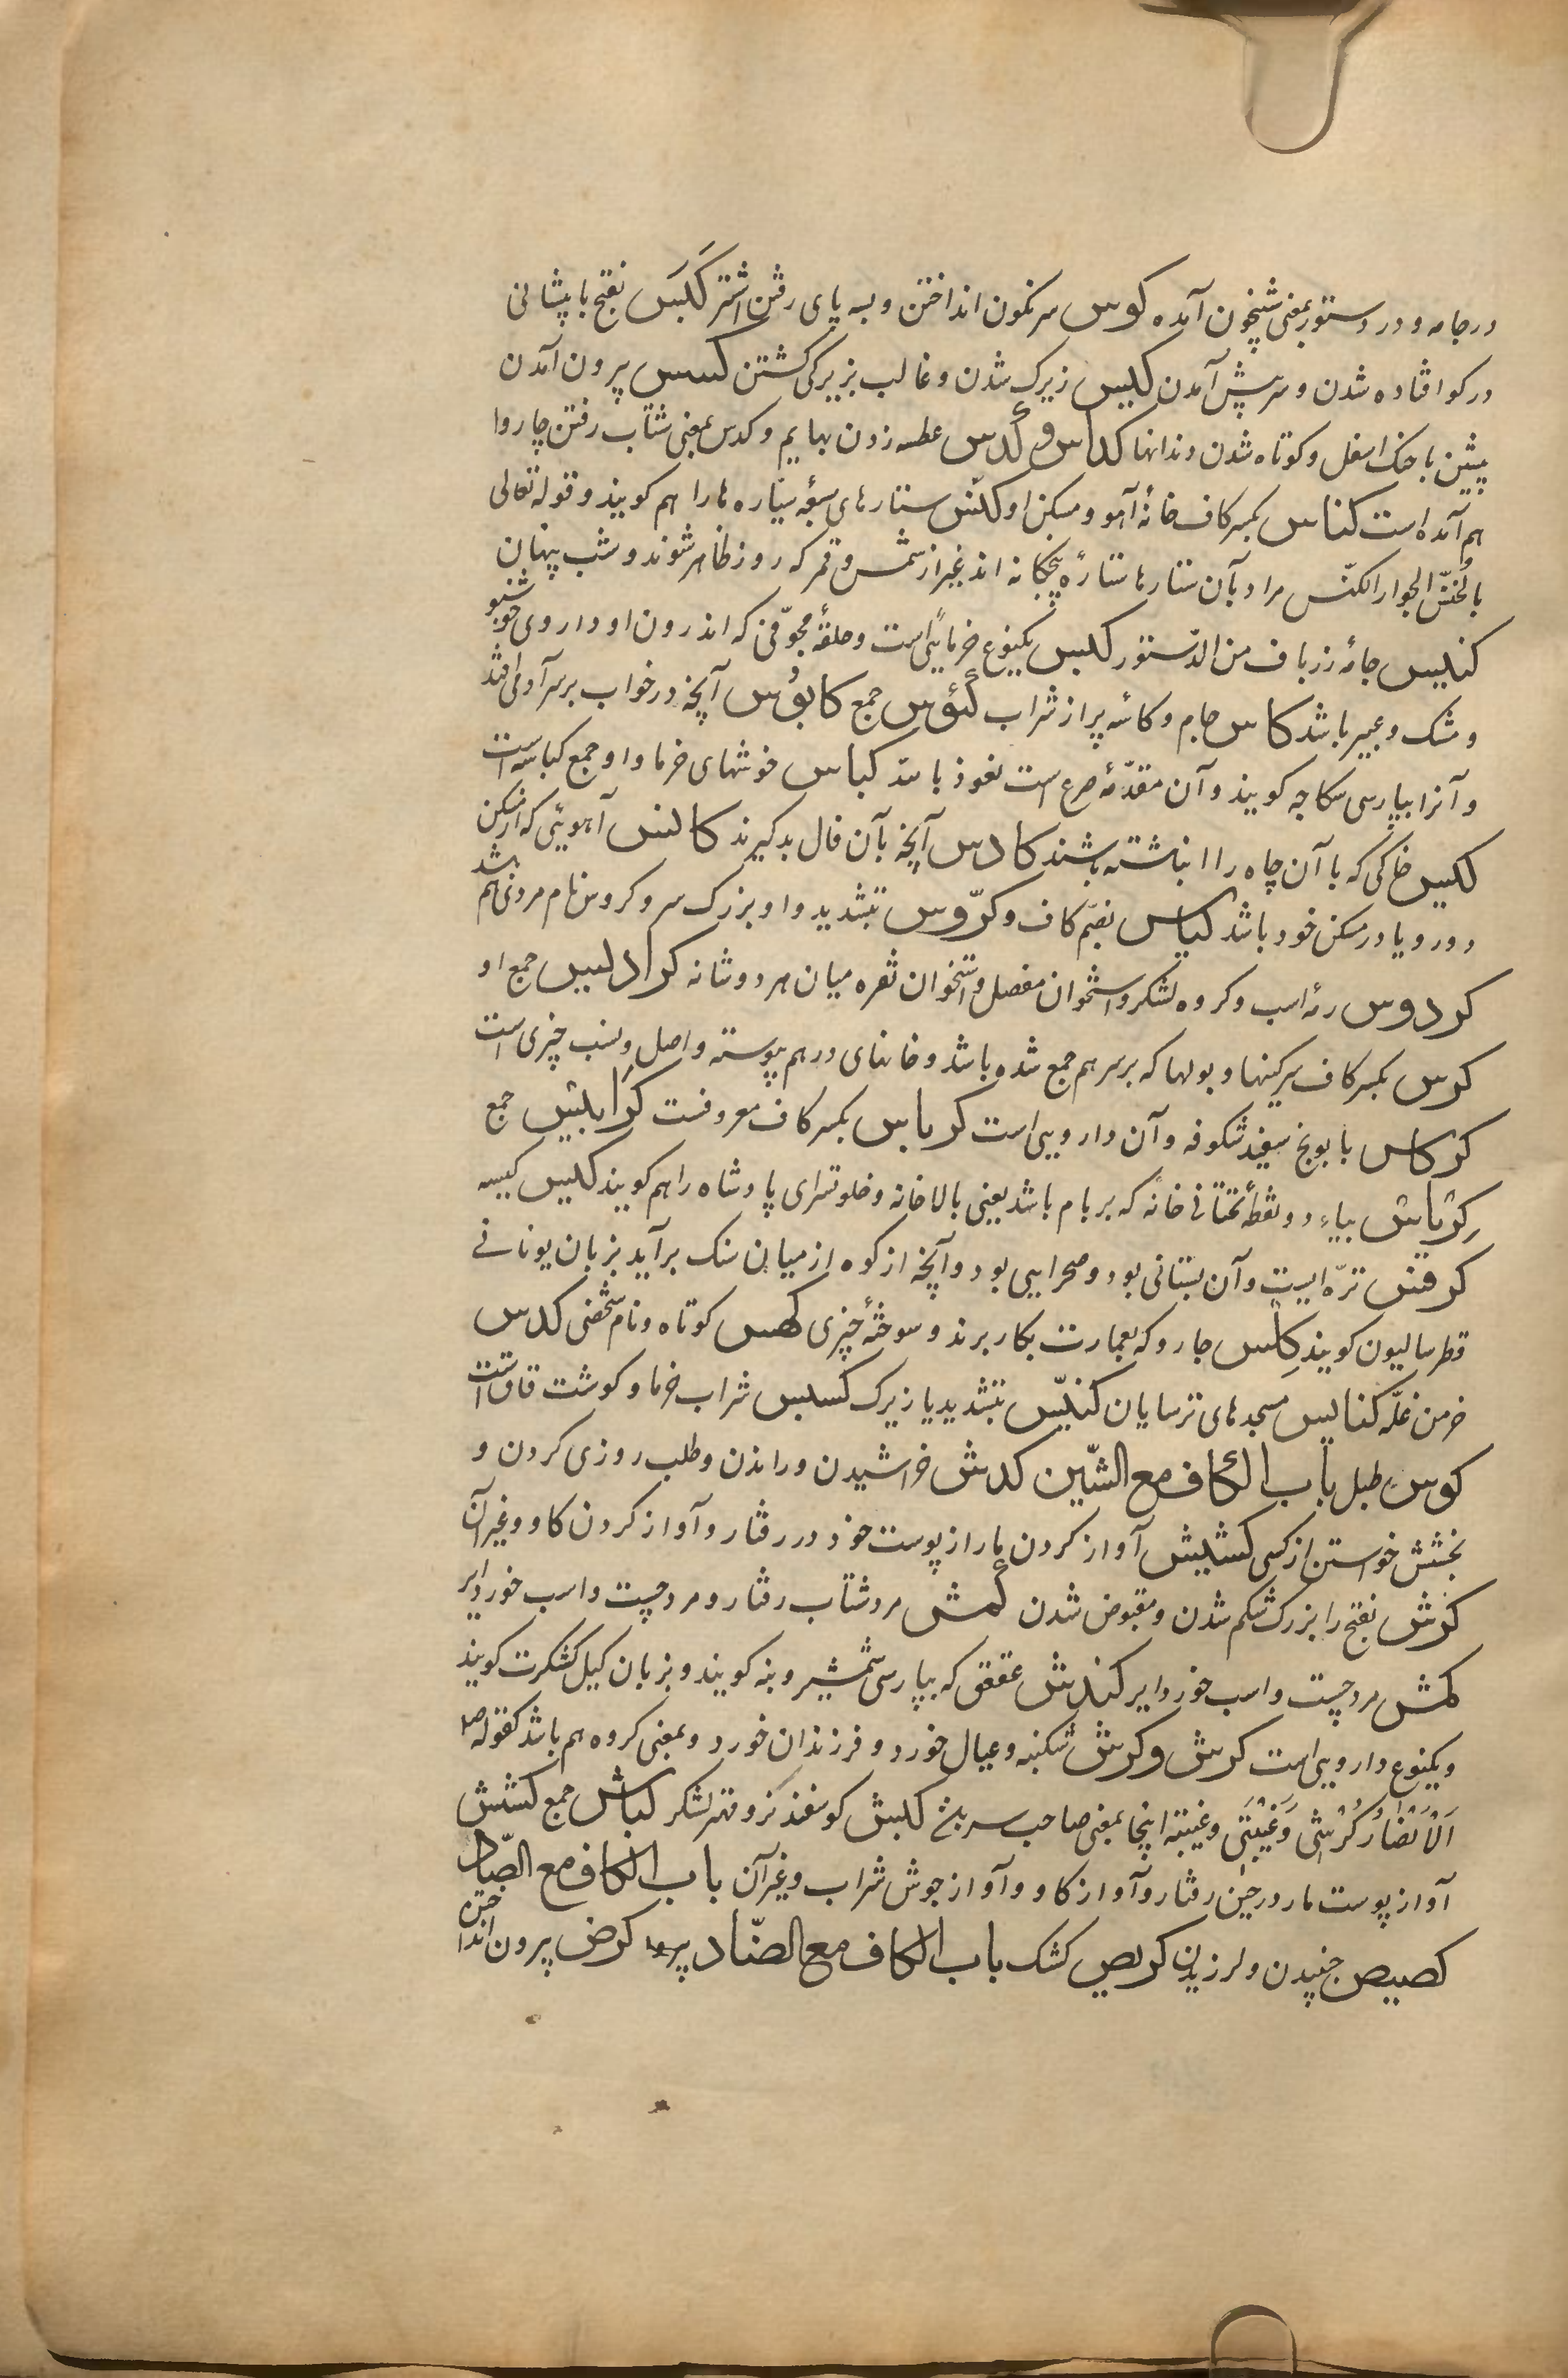 در جامه و در دستور بمعنی شبخون آمده کوس سرنکون انداختن و بسه پای رفتن اشتر کَبَس بفتح با پیشانی
در کو افتاده شدن و سر پیش آمدن کیس زیرک شدن و غالب بزیرکی کشتن کسس پیرون آمدن
پیشین با حنک اسفل و کوتاه شدن دندانها کداس و کدس عطسه زدن بهایم و کدس بمعنی شتاب رفتن چاروا
هم آمده است کناس بکسر کاف خانهٔ آهو و مسکن او کنّس ستارهای سبعهٔ سیاره ها را هم کویند و قوله تعالی
بالخنّس الجوار الکنّس مراد بآن ستارها ستارهٔ پنجکانه اند غیر از شمس و قمر که روز ظاهر شوند و شب پنهان
کنیس جامهٔ زرباف من الدّستور کبیس یکنوع خرمایی است و حلقهٔ مجوّفی که اندرون او داروی خوشبو
و مشک و عبیر باشد کاس جام و کاسه پر از شراب کئوس جمع کابوس آنچه در خواب بر سر آدمی افتد
و آنرا بپارسی سکاچه کویند و آن مقدّمهٔ صرع است نعوذ بالله کباس خوشهای خرما و او جمع کباسه است
کبس خاکی که با آن چاه را انباشته باشند کادس آنچه بآن فال بد کیرند کانس آهویی که از مسکن
دور و یا در مسکن خود باشد کباس بضم کاف و کرّوس بتشدید واو بزرک سر و کروس نام مردی هم باشد
کردوس رمهٔ اسب و کروه لشکر و استخوان مفصل و استخوان ثغره میان هر دو شانه کرادیس جمع او
کرس بکسر کاف سرکینها و بولها که بر سر هم جمع شده باشد و خانهای در هم پیوسته و اصل و نسب چیزی است
کرکاس بابونج سفید شکوفه و آن دارویی است کرباس بکسر کاف معروفست کرابیس جمع
کریاس بیاء دو نقطهٔ تحتانی خانهٔ که بر بام باشد یعنی بالاخانه و خلوتسرای پادشاه را هم کویند کیس کیسه
کرفس ترّه ایست و آن بستانی بود و صحرایی بود و آنچه از کوه از میان سنک برآید بزبان یونانی
قطرسالیون کویند کِلس چارو که بعمارت بکار برند و سوختهٔ چیزی کهس کوتاه و نام شخصی کدس
خرمن غلّه کنایس مسجدهای ترسایان کیّس بتشدید یا زیرک کسیس شراب خرما و کوشت قاق است
کوس طبل باب الکاف مع الشّین کدش خراشیدن و راندن و طلب روزی کردن و
بخشش خواستن از کسی کشیش آواز کردن مار از پوست خود در رفتار و آواز کردن کاو و غیر آن
کرش بفتح را بزرک شکم شدن و مقبوض شدن کمش مرد شتاب رفتار و مرد چست و اسب خورد ایر
کمش مرد چست و اسب خورد ایر کندش عقعق که بپارسی شمشیر و بنه کویند و بزبان کیل کشکرت کویند
و یکنوع دارویی است کرش و کرش شکنبه و عیال خورد و فرزندان خورد و بمعنی کروه هم باشد کقوله صلا
اَلاَنْصَارُ کَرِشی وَ عَیْبَتی و عیبه اینجا بمعنی صاحب سر کبش کوسفند نر و مهتر لشکر کباش جمع کشش
آواز پوست مار در حین رفتار و آواز کاو و آواز جوش شراب و غیر آن باب الکاف مع الصّاد
کصیص جنبیدن و لرزیدن کریص کشک باب الکاف مع الضّاد کرض پیرون انداختن